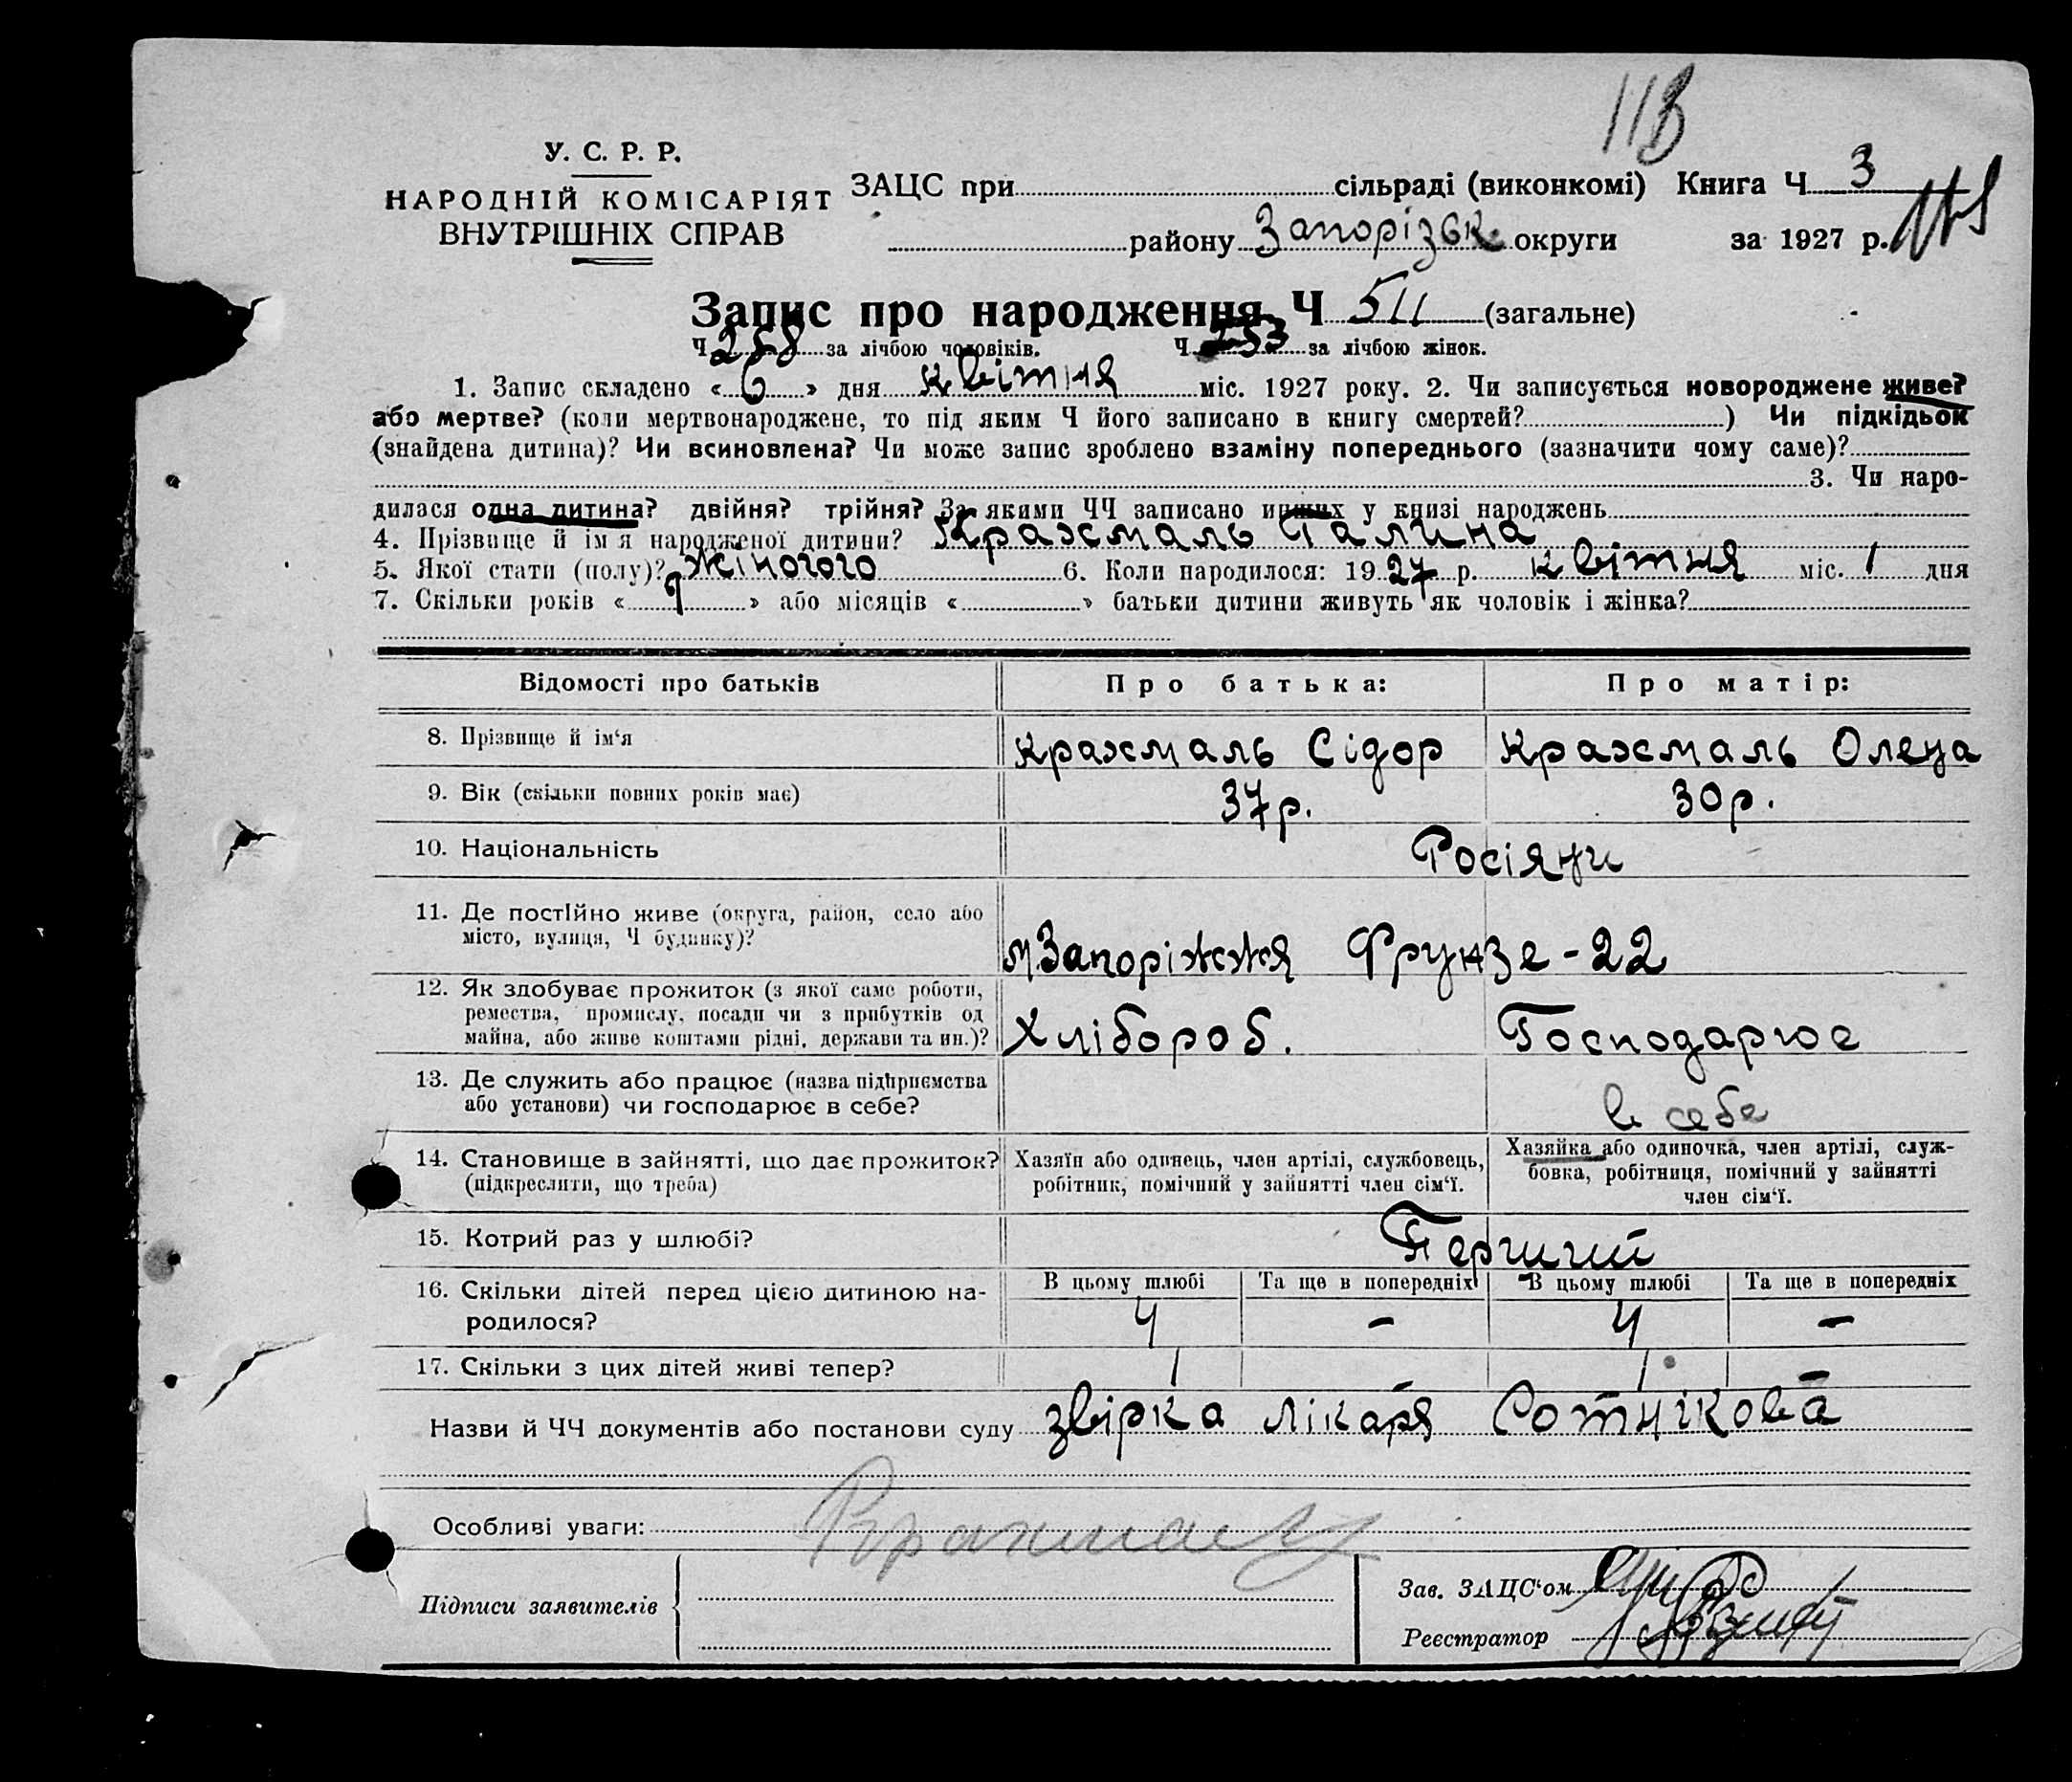 113
У. С. Р. Р.
НАРОДНІЙ КОМІСАРІЯТ
ВНУТРІШНІХ СПРАВ
ЗАЦС при сільраді (виконкомі) Книга Ч 3
району Запорізьк. округи за 1927 р.
Запис про народження Ч 511 (загальне)
Ч 258 за лічбою чоловіків. Ч 253 за лічбою жінок.
1. Запис складено « 6 » дня квітня міс. 1927 року. 2. Чи записується новороджене живе?
або мертве? (коли мертвонароджене, то під яким Ч його записано в книгу смертей? ) Чи підкідьок
(знайдена дитина)? Чи всиновлена? Чи може запис зроблено взаміну попереднього (зазначити чому саме)?
3. Чи наро-
дилася одна дитина? двійня? трійня? За якими ЧЧ записано инших у книзі народжень
4. Прізвище й ім'я народженої дитини? Крахмаль Галина
5. Якої стати (полу)? Жіногого 6. Коли народилося: 19 27 р. квітня міс. 1 дня
7. Скільки років « 9 » або місяців « » батьки дитини живуть як чоловік і жінка?
Відомості про батьків Про батька: Про матір:
8. Прізвище й ім'я Крахмаль Сідор Крахмаль Олена
9. Вік (скільки повних років має) 37 р. 30 р.
10. Національність Росіяни
11. Де постійно живе (округа, район, село або
місто, вулиця, Ч будинку)? м. Запоріжжя Фрунзе - 22
12. Як здобуває прожиток (з якої саме роботи,
ремества, промислу, посади чи з прибутків од
майна, або живе коштами рідні, держави та ин.)? Хлібороб. Господарює
13. Де служить або працює (назва підприємства
або установи) чи господарює в себе? в себе
14. Становище в зайнятті, що дає прожиток?
(підкреслити, що треба)
Хазяїн або одинець, член артілі, службовець,
робітник, помічний у зайнятті член сім'ї.
Хазяйка або одиночка, член артілі, служ-
бовка, робітниця, помічний у зайнятті
член сім'ї.
15. Котрий раз у шлюбі? Перший
16. Скільки дітей перед цією дитиною на-
родилося?
В цьому шлюбі Та ще в попередніх В цьому шлюбі Та ще в попередніх
4 - 4 -
17. Скільки з цих дітей живі тепер? 1 1
Назви й ЧЧ документів або постанови суду звірка лікаря Сотнікова
Особливі уваги:
Підписи заявителів
Зав. ЗАЦС'ом
Реєстратор